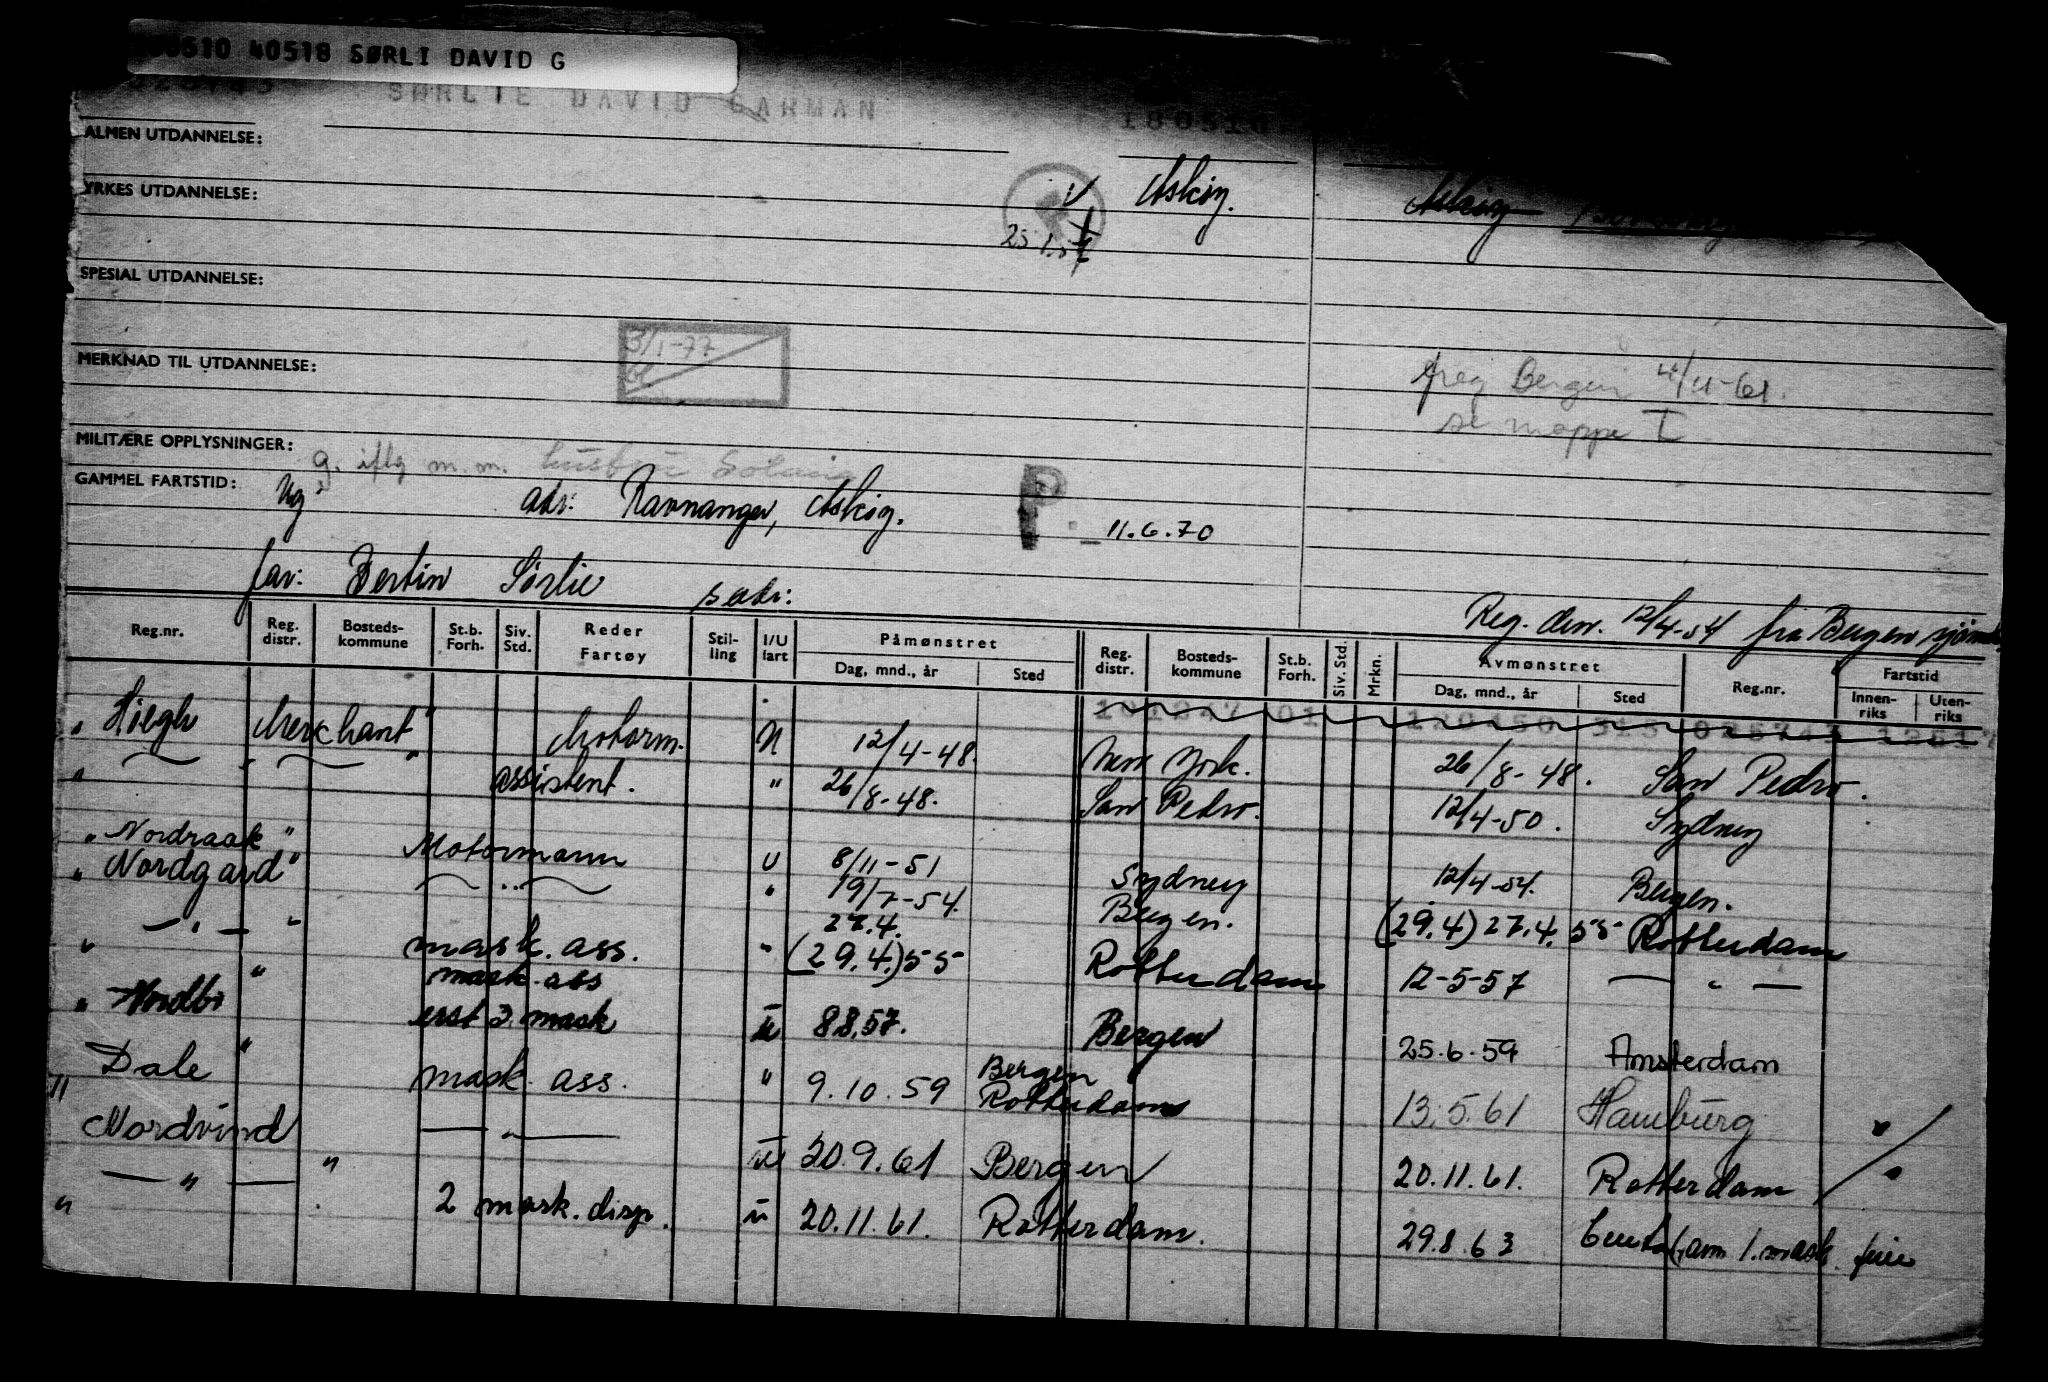 0510 40518 SØRLI DAVID G
SØRLIE DAVID GARMAN 180510
ALMEN UTDANNELSE:
YRKES UTDANNELSE: Askøy. Askøy
25.1.57
SPESIAL UTDANNELSE:
3/1-77
MERKNAD TIL UTDANNELSE:
freg Bergen 4/11-61.
se mappe I
MILITÆRE OPPLYSNINGER:
g. iflg m.m. hustru Solveig
GAMMEL FARTSTID: Ug adr: Ravnanger, Askøy. P. 11.6.70
far: Bertin Sørlie s adr:
Reg. den. 12/4-54 fra Bergen sjømk.
Reg.nr. Reg. distr. Bosteds-kommune St.b. Forh. Siv. Std. Reder Fartøy Stil-ling I/U fart Påmønstret Dag, mnd., år Sted Reg. distr. Bosteds-kommune St.b. Forh. Siv. Std. Mrkn. Avmønstret Dag, mnd., år Sted Reg.nr. Fartstid Innen-riks Uten-riks
" Høegh Merchant" Motorm. U 12/4-48. New York. 26/8-48. San Pedro.
" — " — " assistent. " 26/8-48. San Pedro. 12/4-50. Sydney
" Nordraak" Motormann U 8/11-51 Sydney 12/4-54. Bergen.
" Nordgard" — " — " 19/7-54. Bergen. (29.4) 27.4.55 Rotterdam
— " — " mask. ass. " 27.4. (29.4.) 55 Rotterdam 12-5-57 — " —
mask. ass
" Nordbo " erst 2. mask u 8.8.57. Bergen 25.6.59 Amsterdam
" Dale " mask. ass. " 9.10.59 Bergen Rotterdam 13.5.61 Hamburg "
" Nordvind " — " — u 20.9.61 Bergen 20.11.61. Rotterdam "
" — " — 2 mask. disp. u 20.11.61. Rotterdam. 29.8.63 Ceuta (avm 1. mask. ferie